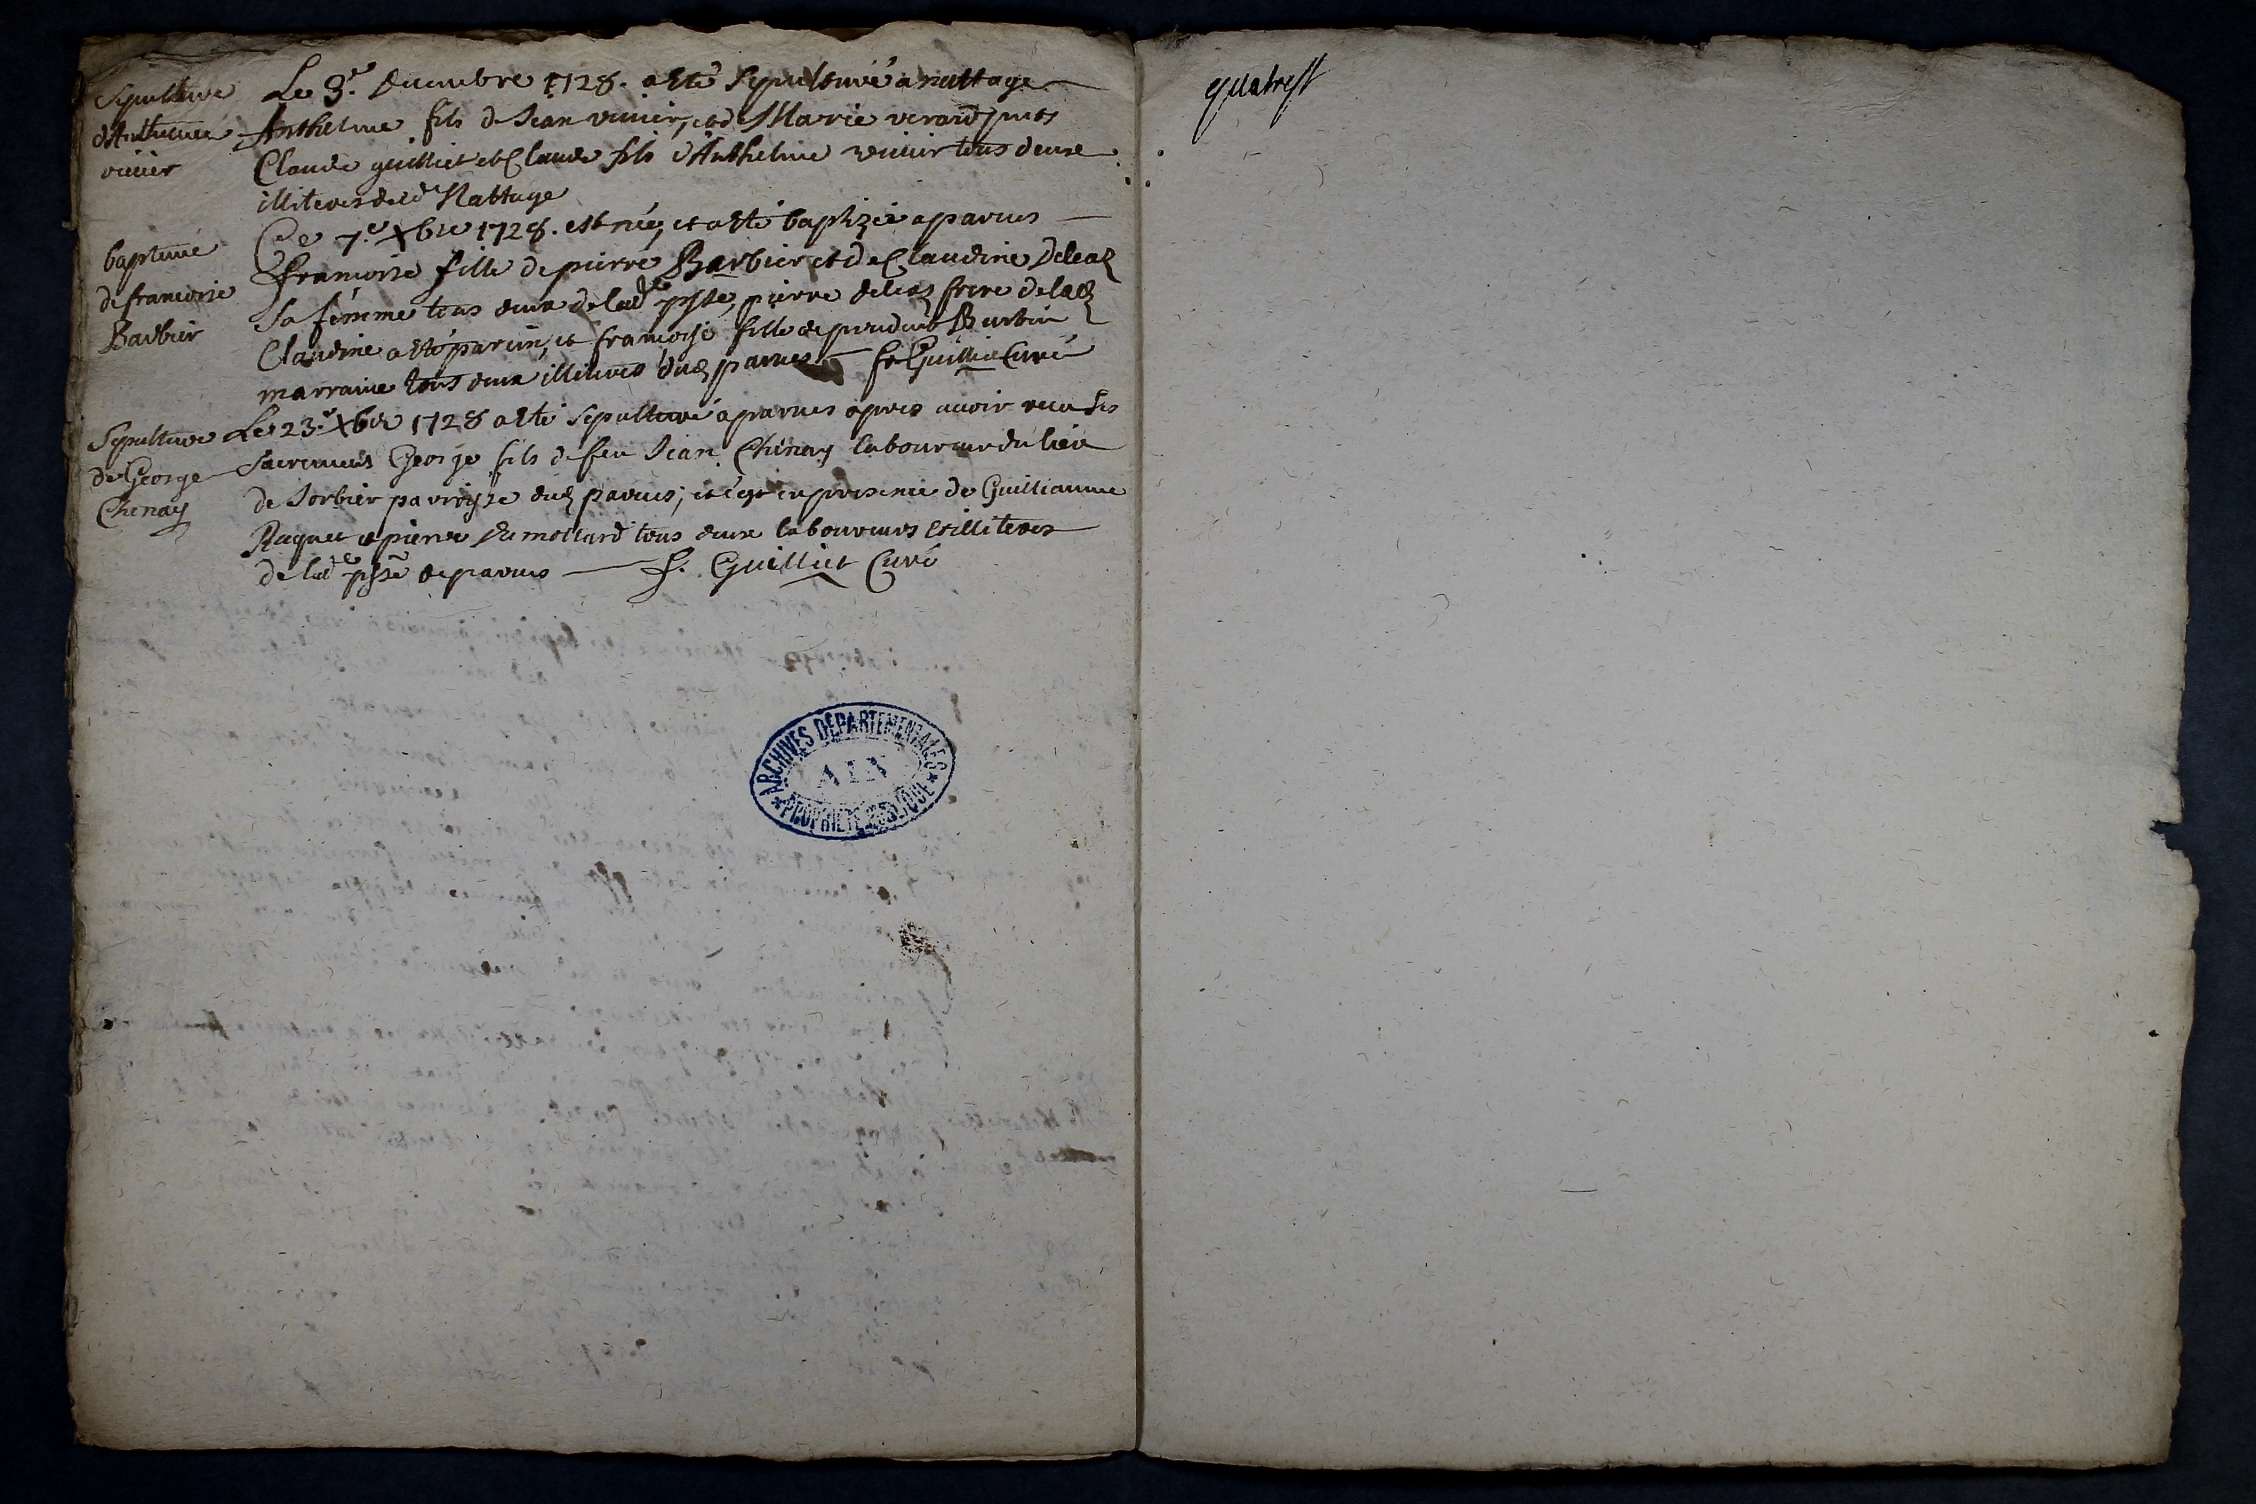 Sepulture
d'Anthelme
vivier
Le 3.e decembre 1728. a esté sepulturé a nattage
Anthelme fils de Jean vivier, et de Marie verard pnts
Claude guilliet et Claude fils d'Anthelme vivier tous deux
illiteres dud Nattage
baptême
de francoise
Barbier
Ce 7.e Xbre 1728. est née, et a esté baptizée a parves
francoise fille de pierre Barbier et de Claudine Deleaz
sa femme tous deux de lade psse, pierre deleaz frere de lad
Claudine a esté parrin, et francoise fille de prudent Barbier
marraine tous deux illiteres dud parves fr Guilliet Curé
Sepulture
de George
Chinay
Le 23.e Xbre 1728 a esté sepulturé a parves apres avoir receu ses
sacremens George fils de feu Jean Chinay laboureur du lieu
de Sorbier parroisse dud parves; et c'est en presence de Guilliaume
Raquet et pierre Du mollard tous deux laboureurs et illiteres
de lade psse de parves f. Guilliet Curé
ARCHIVES DEPARTEMENTALES
AIN
PROPRIETE PUBLIQUE